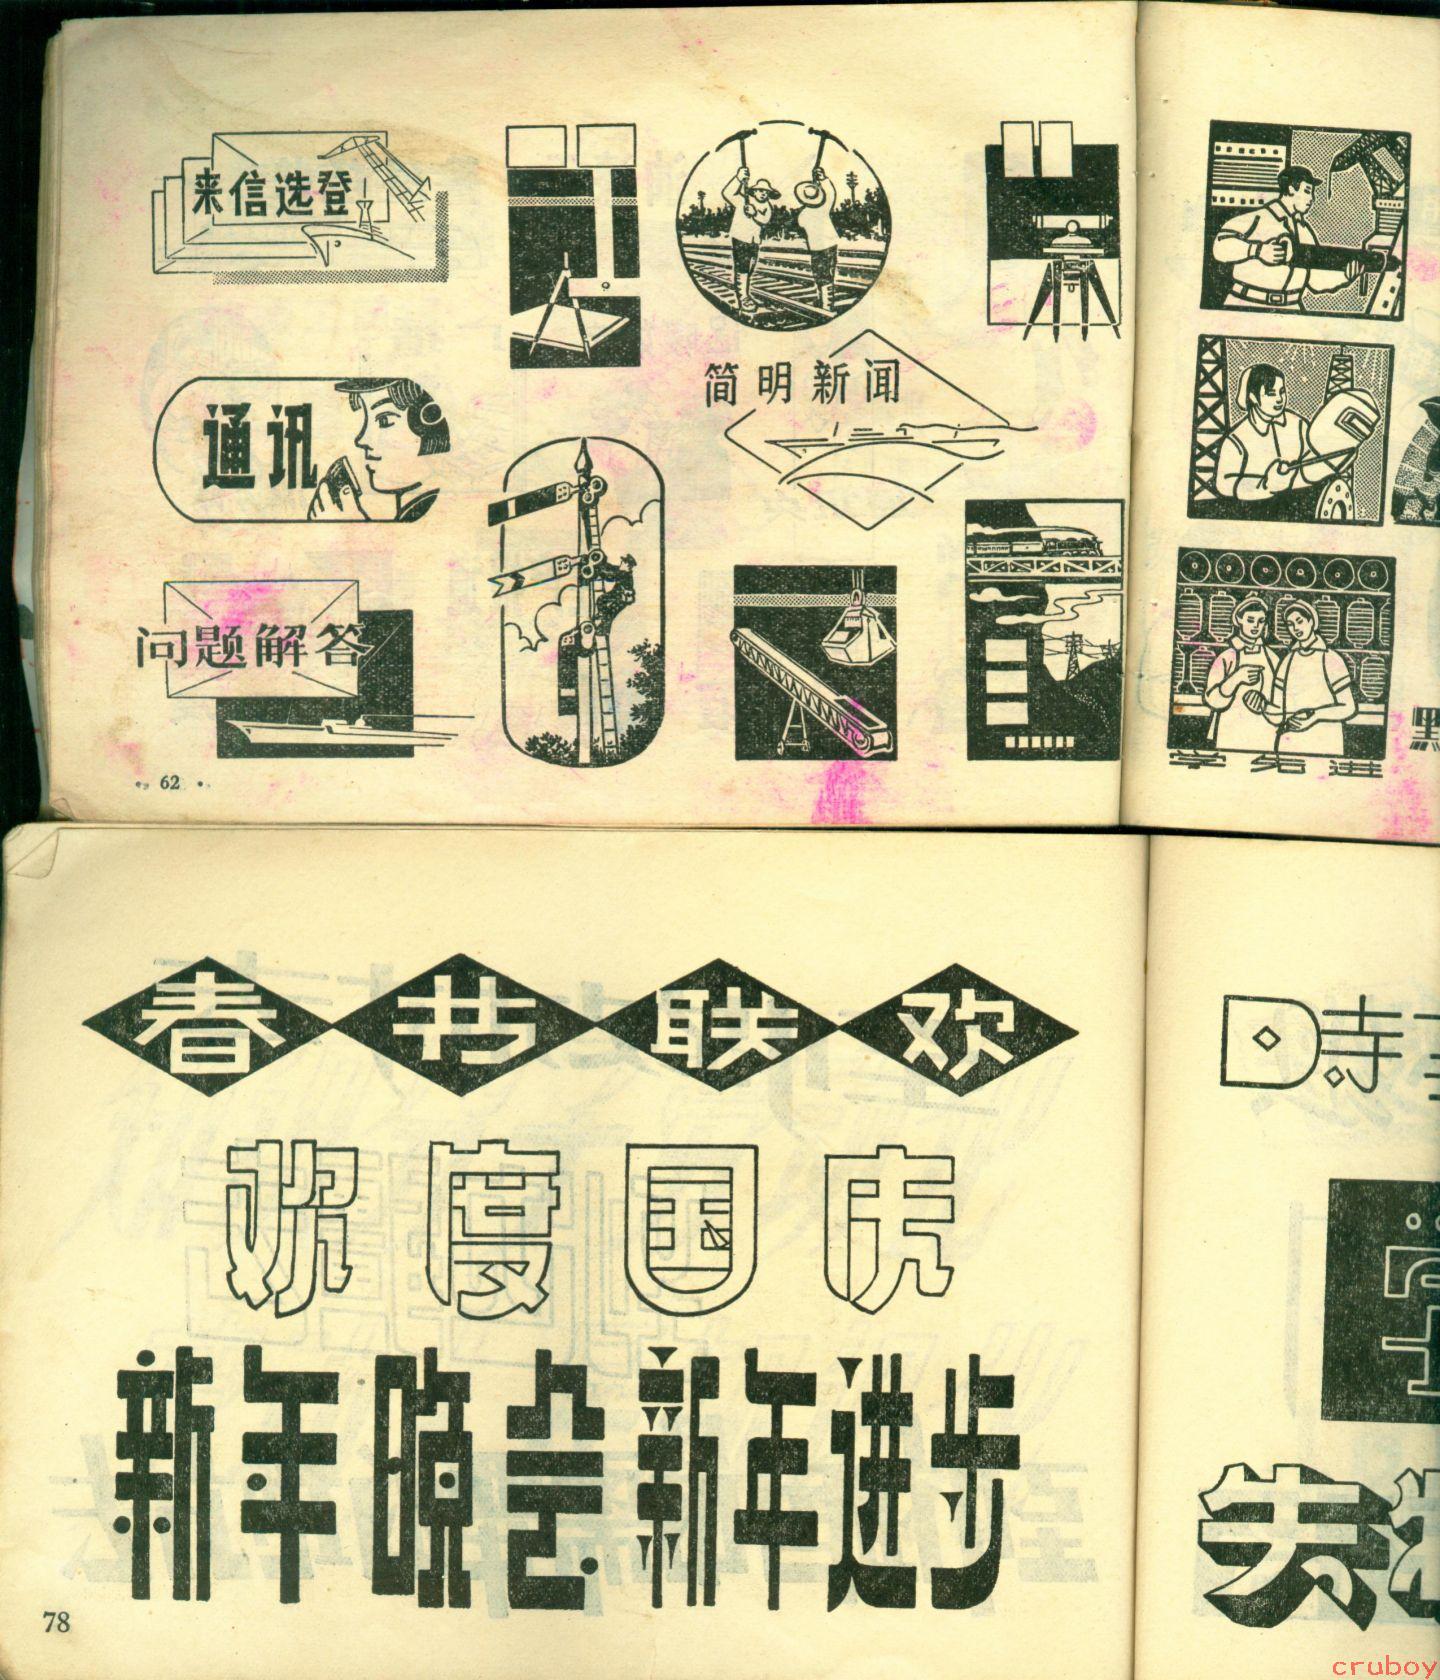 来信选登
简明新闻
通讯
问题解答
学先进
62
春节联欢
欢度国庆
新年晚会新年进步
78
cruboy